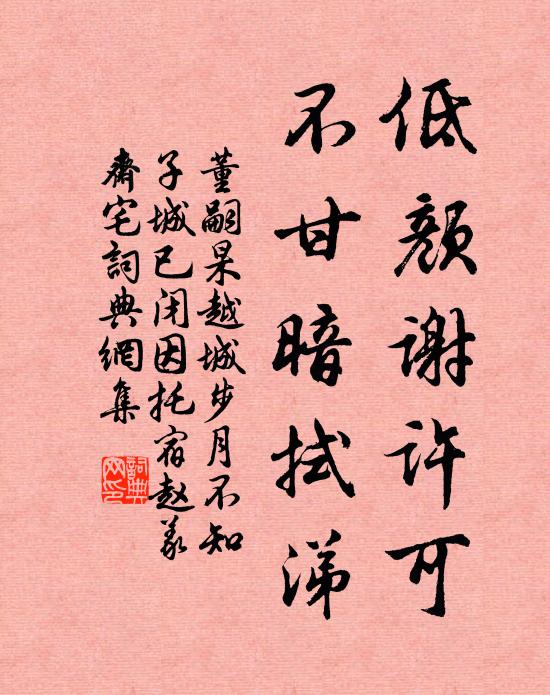 低颜谢许可
不甘暗拭涕
董嗣杲越城步月不知
子城已闭因托宿赵义
斋宅词典網集
詞典網印